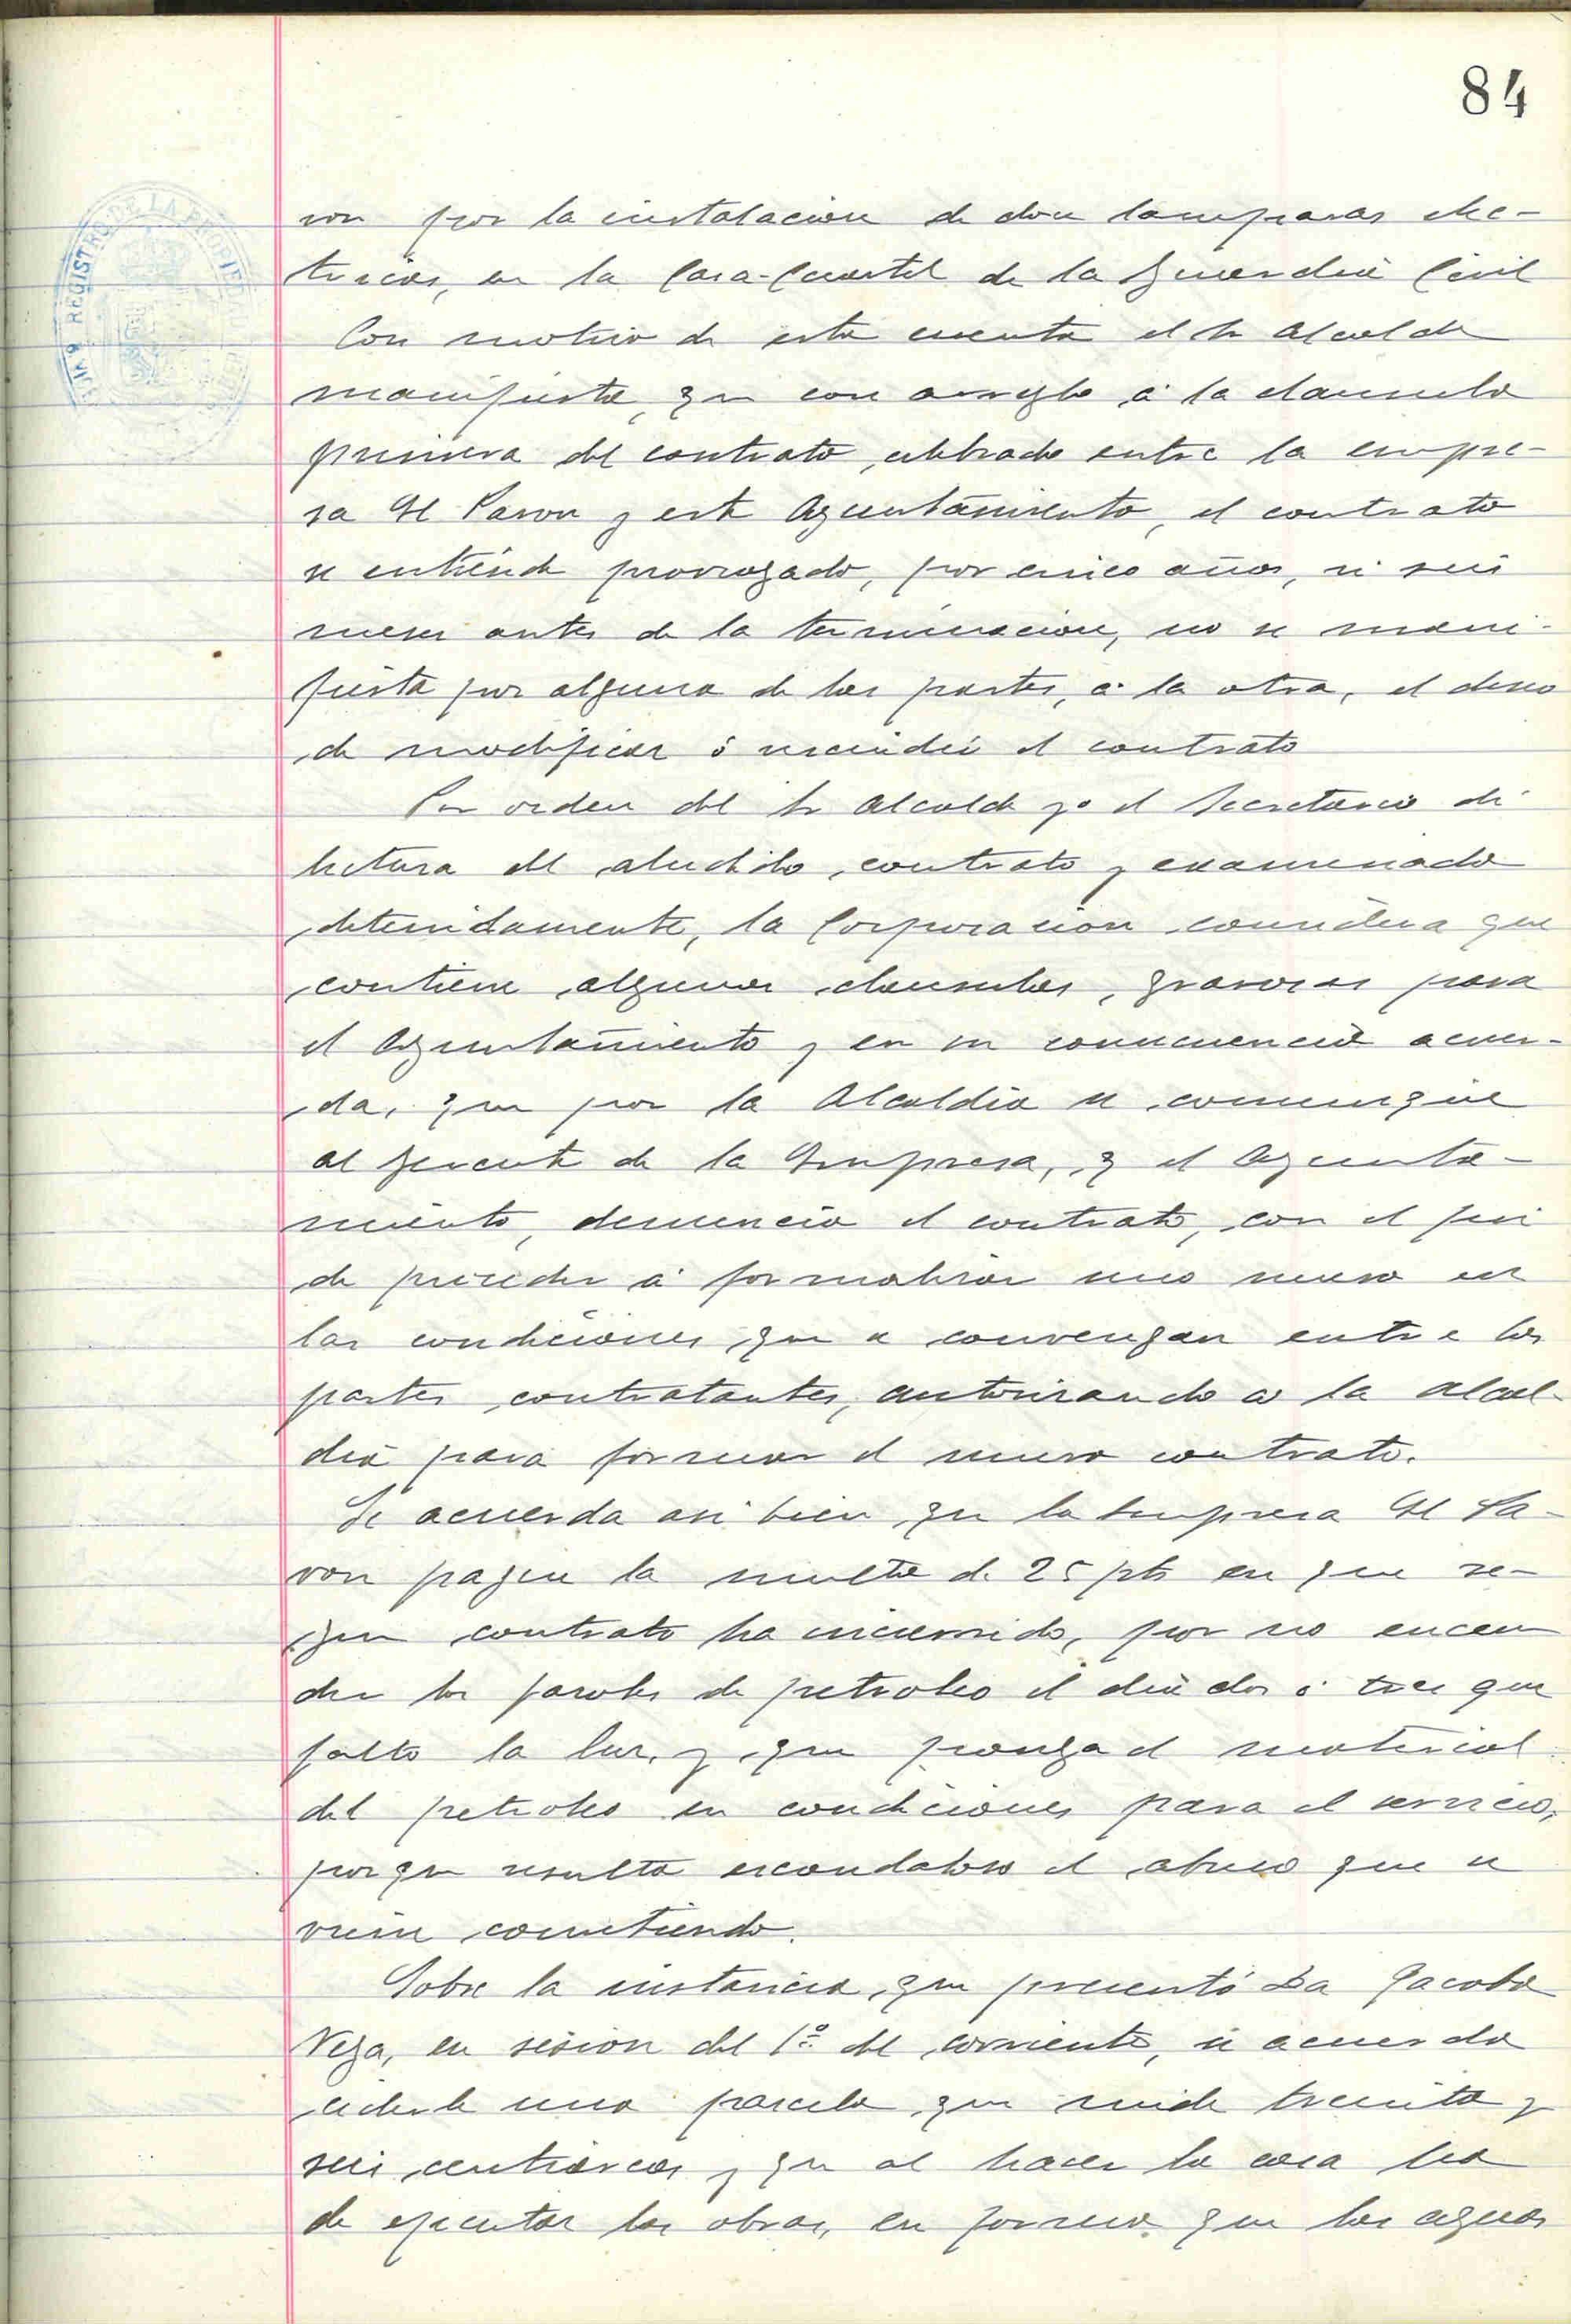 84
ron por la instalacion de doce lamparas elec-
tricas, en la Casa-Cuartel de la Guardia Civil
Con motivo de esta cuenta el Sr Alcalde
manifiesta, que con arreglo á la clausula
primera del contrato, celebrado entre la empre-
sa El Pavon y este Ayuntamiento, el contrato
se entiende prorrogado, por cinco años, si seis
meses antes de la terminacion, no se mani-
fiesta por alguna de las partes, á la otra, el deseo
de modificar ó rescindir el contrato
Por orden del Sr Alcalde yo el Secretario di
lectura del aludido contrato y examinado
detenidamente, la Corporacion considera que
contiene algunas clausulas, gravosas para
el Ayuntamiento y en su consecuencia acuer-
da, que por la Alcaldia se comunique
al gerente de la Empresa, q el Ayunta-
miento, denuncia el contrato, con el fin
de proceder á formalizar uno nuevo en
las condiciones que se convengan entre las
partes contratantes, autorizando a la Alcal-
dia para formar el nuevo contrato.
Se acuerda asi bien que la Empresa El Pa-
von pague la multa de 25 pts en que se-
gun contrato ha incurrido, por no encen
der los faroles de petroleo el dia dos ó tres que
falto la luz, y que ponga el material
del petroleo en condiciones para el servicio,
porque resulta escandaloso el abuso que se
viene cometiendo.
Sobre la instancia, que presentó Da Jacoba
Vega, en sesion del 1º del corriente, se acuerda
cederle una parcela que mide treinta y
seis centiareas y que al hacer la casa ha
de ejecutar las obras, en forma que las aguas
REGISTRO DE LA PROPIEDAD